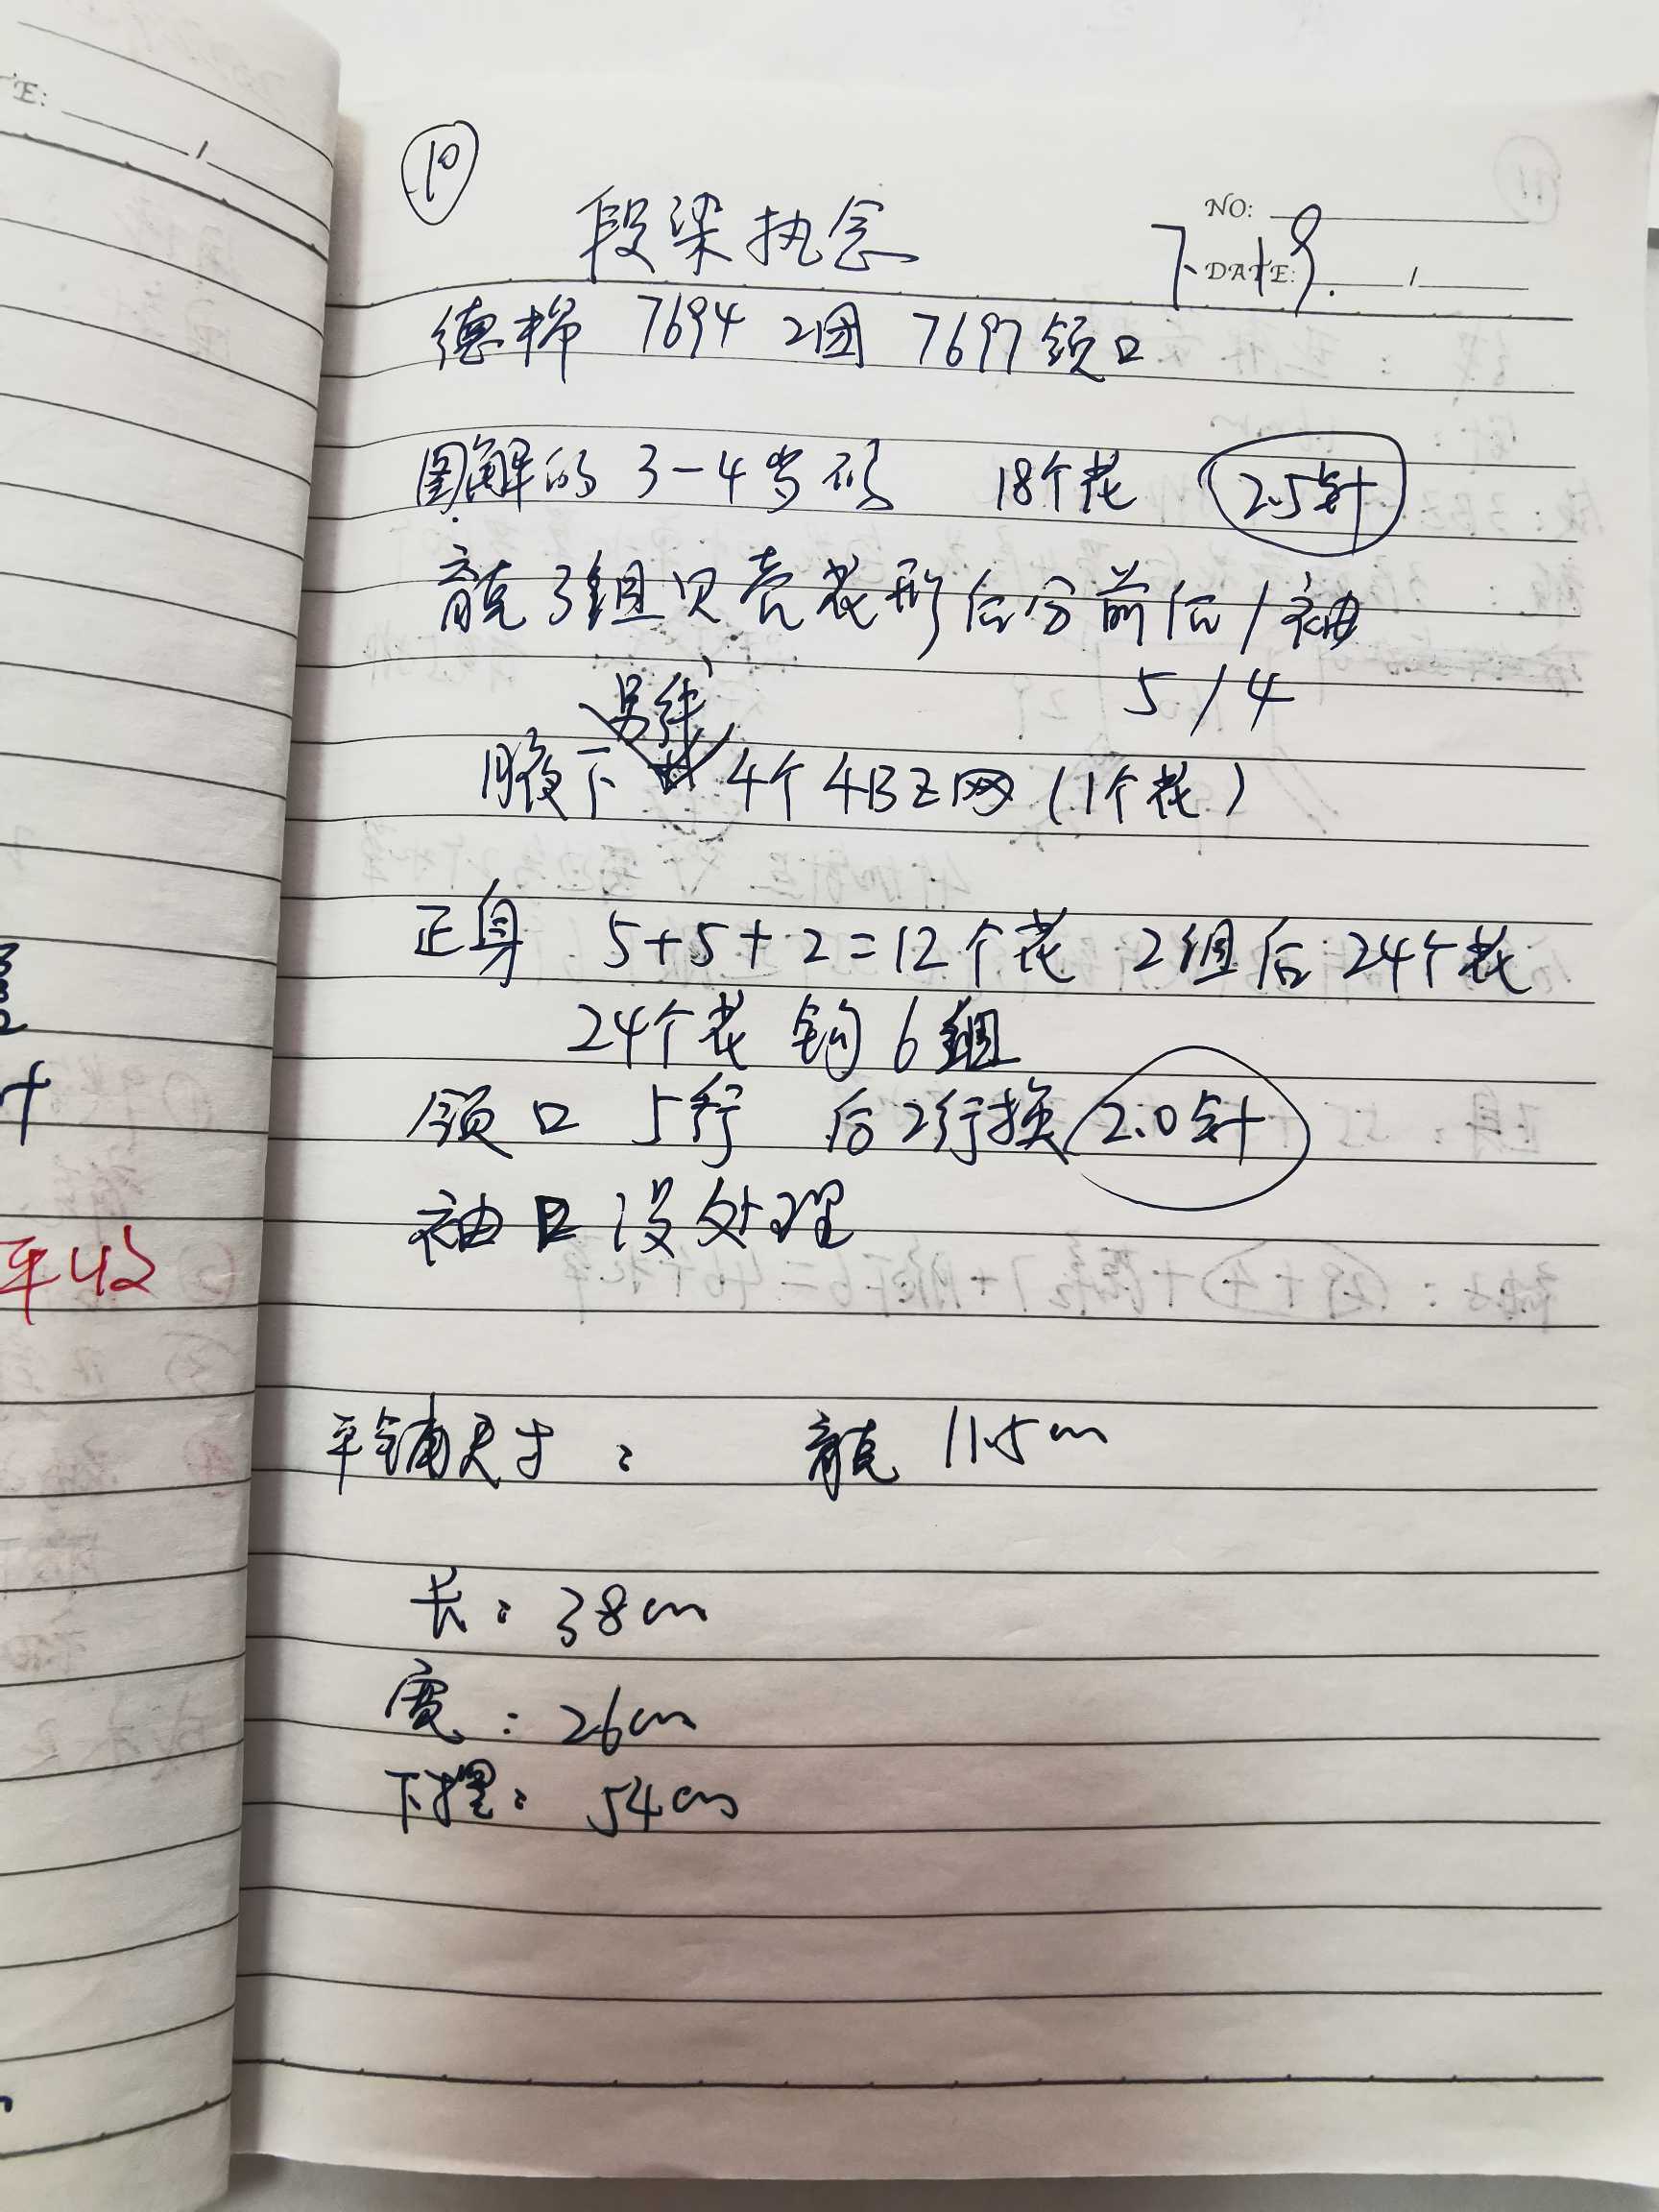 10
NO:
段染执念 下十月.
DATE: /
德棉 7694 2团 7697 领口
图解的 3-4岁码 18个花 2.5针
育克3组贝壳花形后分前后/袖
5/4
另线
腋下 4个4BZ网(1个花)
正身 5+5+2=12个花 2组后24个花
24个花 钩6组
领口 5行 后2行换 2.0针
袖口没处理
平铺尺寸: 育克 11.5cm
长: 38cm
宽: 26cm
下摆: 54cm
平收